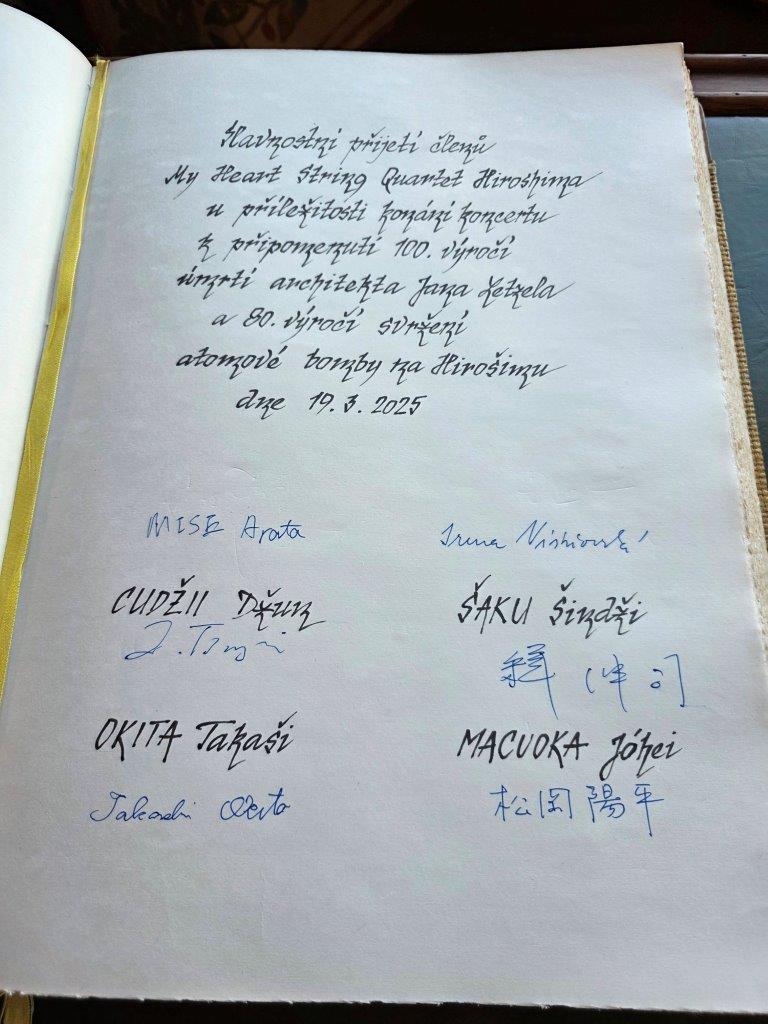 Slavnostní přijetí členů
My Heart String Quartet Hiroshima
u příležitosti konání koncertu
k připomenutí 100. výročí
úmrtí architekta Jana Letzela
a 80. výročí svržení
atomové bomby na Hirošimu
dne 19. 3. 2025
MISE Arata
Irena
CUDŽII Džun
J. Tsujii
ŠAKU Šindži
釋 伸司
OKITA Takaši
Takashi Okita
MACUOKA Jóhei
松岡 陽平